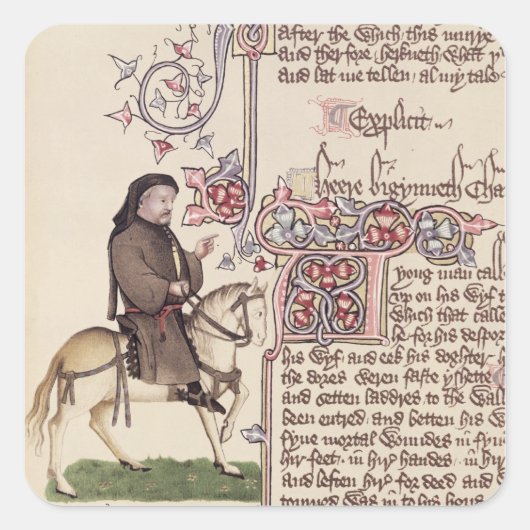 after the which, this mirye
and therfore, herkneth what y
and lat me tellen, al my tale
Explicit
Heere bigynneth Cha
yong man calle
up on his wyf
which that calle
he for his despor
his wyf, and eek his doghter
the dores weren faste yshette
and setten laddres to the wal
been entred, and betten his w
fyue mortal woundes in fyue
hir feet, in hir handes, in hir
and leften hir for deed and
torned was in to his hous